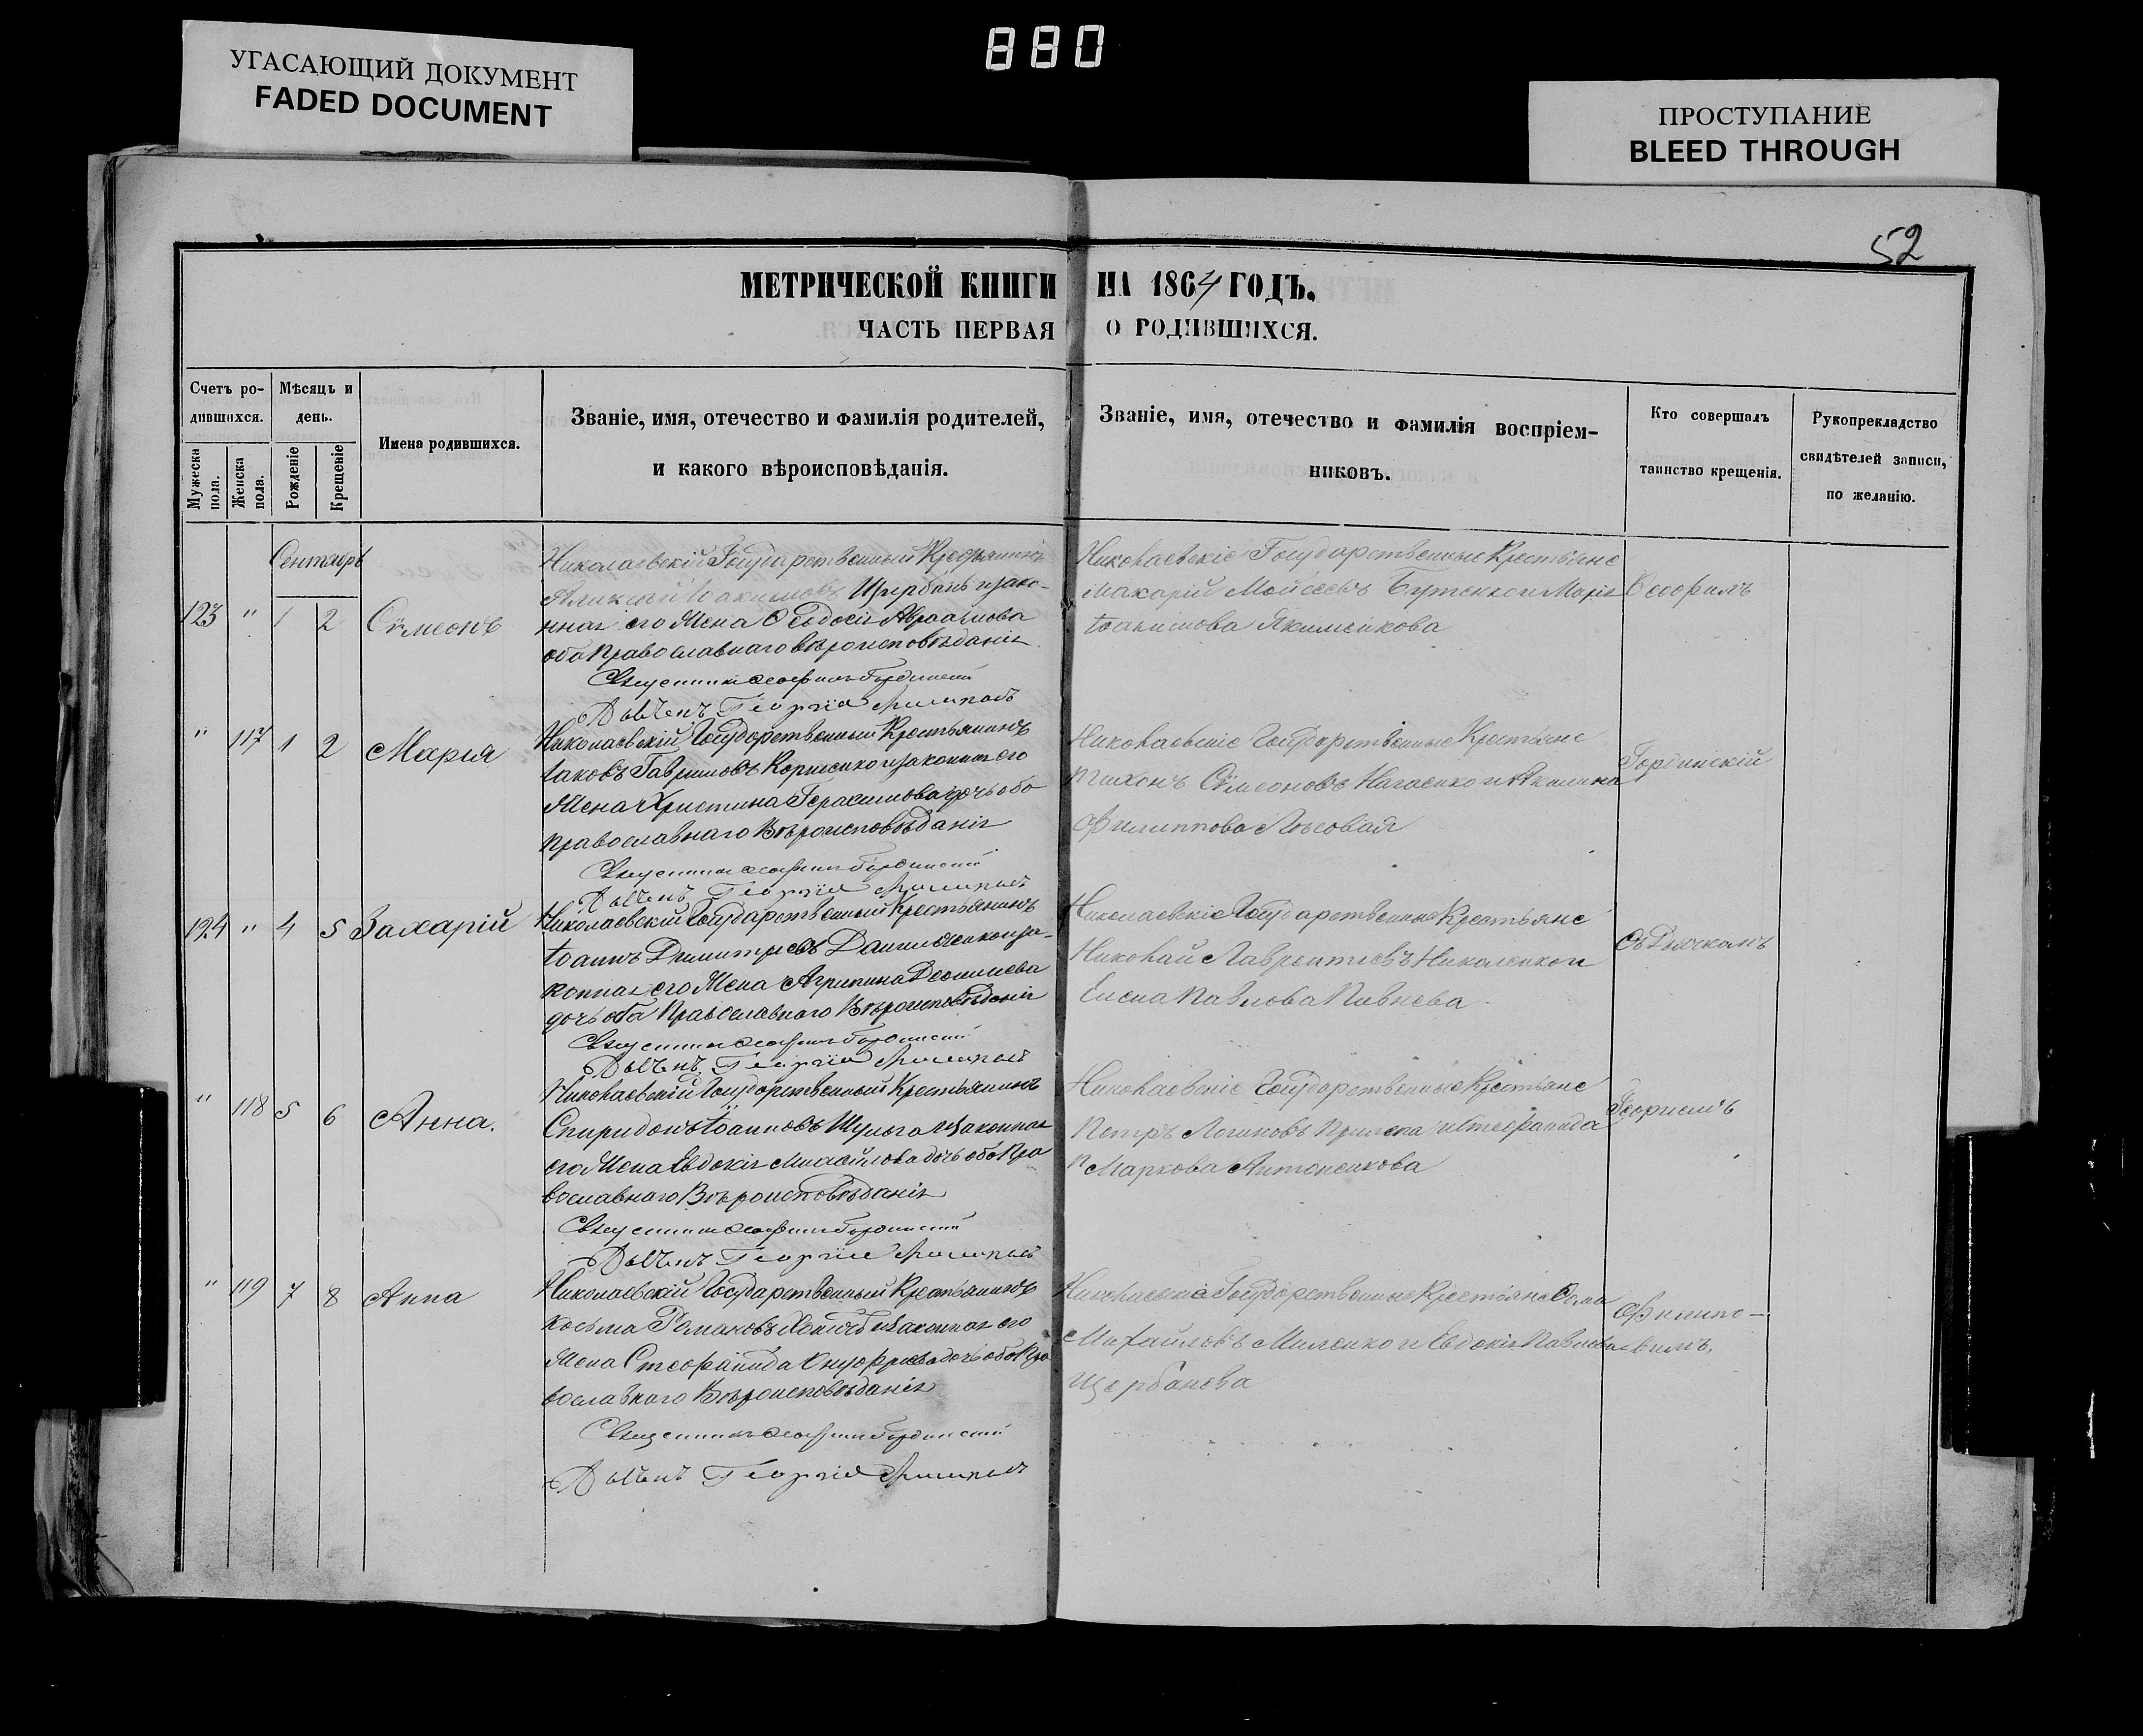 УГАСАЮЩИЙ ДОКУМЕНТ
FADED DOCUMENT
880
ПРОСТУПАНИЕ
BLEED THROUGH
52
МЕТРИЧЕСКОЙ КНИГИ НА 1864 ГОДЪ.
ЧАСТЬ ПЕРВАЯ О РОДИВШИХСЯ.
Счетъ ро-
дившихся.
Мужеска пола.
Женска пола.
Мѣсяцъ и
день.
Рожденіе
Крещеніе
Имена родившихся.
Званіе, имя, отечество и фамилія родителей,
и какого вѣроисповѣданія.
Званіе, имя, отечество и фамилія воспріем-
никовъ.
Кто совершалъ
таинство крещенія.
Рукоприкладство
свидѣтелей записи,
по желанію.
Сентябрь
123 " 1 2 Сѵмеонъ
Николаевскій Государственный Крестьянинъ
Іоакимовъ Щербань и зако-
нная его Жена Ѳеодосія Авраамова
оба Православнаго вѣроисповѣданія
Священникъ Ѳеофилъ Гординскій
Георгій
Николаевскіе Государственные Крестьяне
Макарій Мойсеевъ Бутенко и Марія
Іоакимова Якименкова
Ѳеофилъ
" 117 1 2 Марія
Николаевскій Государственный Крестьянинъ
Іаковъ Гавриловъ Корниенко и законная его
Жена Христина Герасимова дочь оба
Православнаго Вѣроисповѣданія
Священникъ Ѳеофилъ Гординскій
Георгій
Николаевскіе Государственные Крестьяне
Тихонъ Сѵмеоновъ Нагаенко и Акилина
Филиппова Лысовая
Гординскій
124 " 4 5 Захарій
Николаевскій Государственный Крестьянинъ
Іоаннъ Димитріевъ Данильченко и за-
конная его Жена Агрипина Леонтиева
дочь оба Православнаго Вѣроисповѣданія
Священникъ Ѳеофилъ Гординскій
Георгій
Николаевскіе Государственные Крестьяне
Николай Лаврентиевъ Николенко и
Елена Павлова Павнева
съ Дьячкомъ
" 118 5 6 Анна.
Николаевскій Государственный Крестьянинъ
Спиридонъ Іоанновъ Шульга и законная
его Жена Евдокія Михайлова дочь оба Пра
вославнаго Вѣроисповѣданія
Священникъ Ѳеофилъ Гординскій
Георгій
Николаевскіе Государственные Крестьяне
Петръ Логиновъ и Стефанида
Маркова Антоненкова
Георгіемъ
" 119 7 8 Анна
Николаевскій Государственный Крестьянинъ
Косьма Романовъ и законная его
Жена Стефанида Онуфріева дочь оба Пра
вославнаго Вѣроисповѣданія
Священникъ Ѳеофилъ Гординскій
Георгій
Николаевскіе Государственные Крестьяне Ѳома
Михайловъ Миленко и Евдокія Павлова
Щербанева
Филипо-
вымъ.